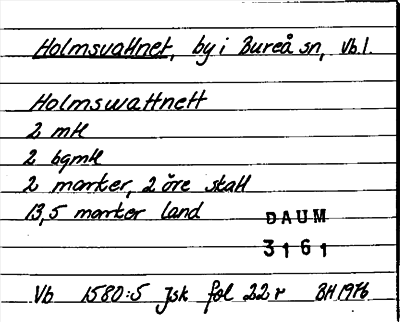 Holmsvattnet, by i Bureå sn, Vb.l.
Holmswattnett
2 mtl
2 bgmtl
2 marker, 2 öre skatt
13,5 marker land
DAUM
3161
Vb 1580:5 Jsk fol 22 r BH 1976